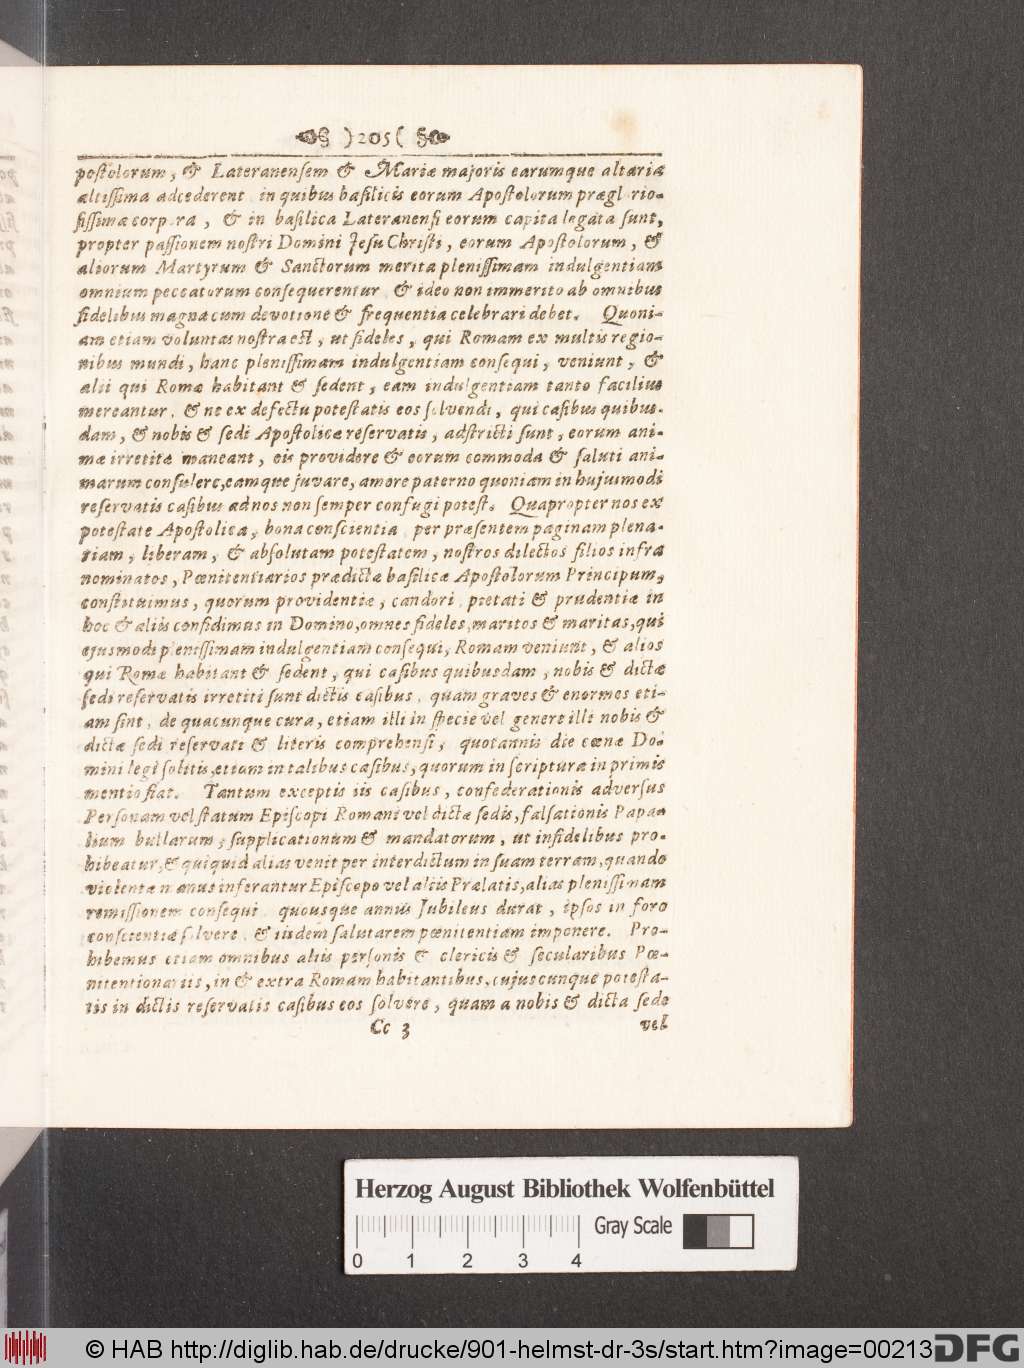 )205(
postolorum, & Lateranensem & Mariæ majoris earumque altaria
altissima adcederent in quibus basilicis eorum Apostolorum præglorio-
sissimæ corpora, & in basilica Lateranensi eorum capita legata sunt,
propter passionem nostri Domini Jesu Christi, eorum Apostolorum, &
aliorum Martyrum & Sanctorum merita plenissimam indulgentiam
omnium peccatorum consequerentur & ideo non immerito ab omnibus
fidelibus magna cum devotione & frequentia celebrari debet. Quoni-
am etiam voluntas nostra est, ut fideles, qui Romam ex multis regio-
nibus mundi, hanc plenissimam indulgentiam consequi, veniunt, &
alii qui Romæ habitant & sedent, eam indulgentiam tanto facilius
mereantur. & ne ex defectu potestatis eos solvendi, qui casibus quibus-
dam, & nobis & sedi Apostolicæ reservatis, adstricti sunt, eorum ani-
mæ irretitæ maneant, eis providere & eorum commoda & saluti ani-
marum consulere, eamque juvare, amore paterno quoniam in hujuimodi
reservatis casibus ad nos non semper confugi potest. Quapropter nos ex
potestate Apostolica, bona conscientia per præsentem paginam plena-
riam, liberam, & absolutam potestatem, nostros dilectos filios infra
nominatos, Pœnitentiarios prædictæ basilicæ Apostolorum Principum,
constituimus, quorum providentiæ, candori, pietati & prudentiæ in
hoc & aliis confidimus in Domino, omnes fideles, maritos & maritas, qui
ejusmodi plenissimam indulgentiam consequi, Romam veniunt, & alios
qui Romæ habitant & sedent, qui casibus quibusdam, nobis & dictæ
sedi reservatis irretiti sunt dictis casibus, quam graves & enormes eti-
am sint, de quacunque cura, etiam illi in specie vel genere illi nobis &
dictæ sedi reservati & literis comprehensi, quotannis die cœnæ Do-
mini legi solitis, etiam in talibus casibus, quorum in scriptura in primis
mentio fiat. Tantum exceptis iis casibus, confederationis adversus
Personam vel statum Episcopi Romani vel dictæ sedis, falsationis Papa-
lium bullarum, supplicationum & mandatorum, ut infidelibus pro-
hibeatur, & quiquid alias venit per interdictum in suam terram, quando
violentæ manus inferantur Episcopo vel aliis Prælatis, alias plenissimam
remissionem consequi quousque annus Jubileus durat, ipsos in foro
conscientiæ solvere, & iisdem salutarem pœnitentiam imponere. Pro-
hibemus etiam omnibus aliis personis & clericis & secularibus Pœ-
nitentionariis, in & extra Romam habitantibus, cujuscunque potesta-
tis in dictis reservatis casibus eos solvere, quam a nobis & dicta sede
Cc 3 vel
Herzog August Bibliothek Wolfenbüttel
Gray Scale
0 1 2 3 4
© HAB http://diglib.hab.de/drucke/901-helmst-dr-3s/start.htm?image=00213
DFG